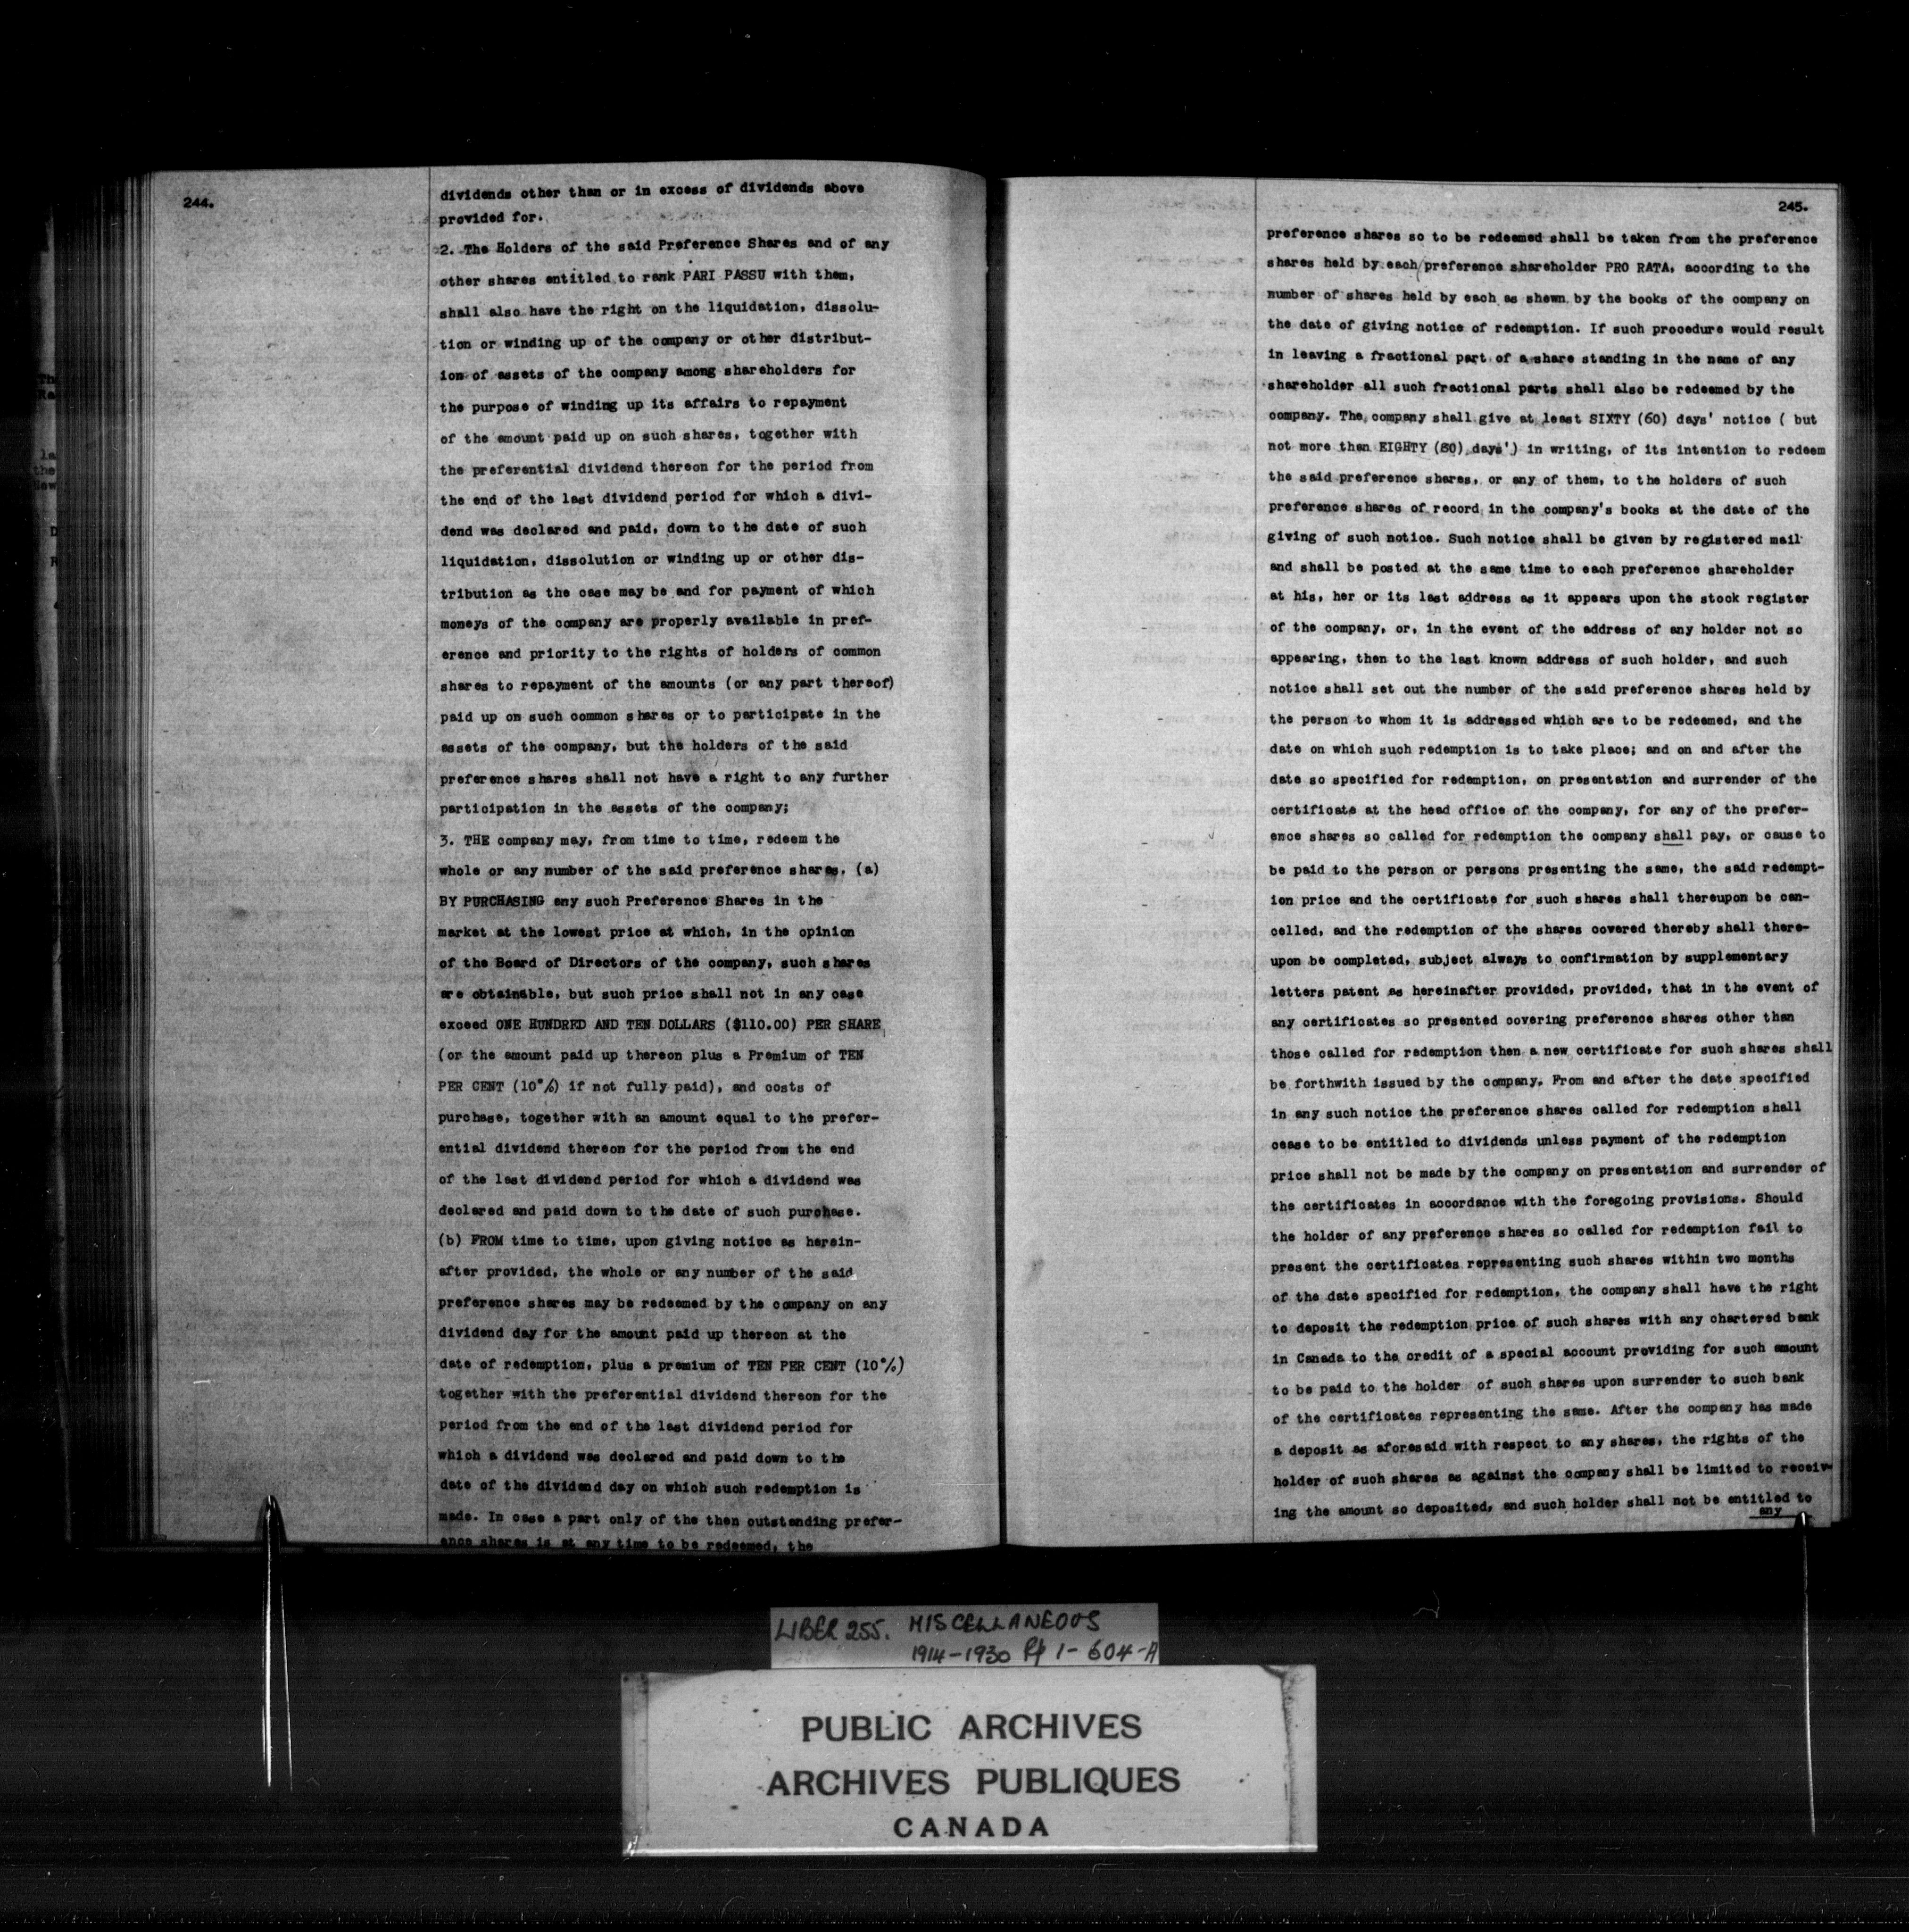 244.
dividends other than or in excess of dividends above
provided for.
2. The Holders of the said Preference Shares and of any
other shares entitled to rank PARI PASSU with them,
shall also have the right on the liquidation, dissolu-
tion or winding up of the company or other distribut-
ion of assets of the company among shareholders for
the purpose of winding up its affairs to repayment
of the amount paid up on such shares, together with
the preferential dividend thereon for the period from
the end of the last dividend period for which a divi-
dend was declared and paid, down to the date of such
liquidation, dissolution or winding up or other dis-
tribution as the case may be and for payment of which
moneys of the company are properly available in pref-
erence and priority to the rights of holders of common
shares to repayment of the amounts (or any part thereof)
paid up on such common shares or to participate in the
assets of the company, but the holders of the said
preference shares shall not have a right to any further
participation in the assets of the company;
3. THE company may, from time to time, redeem the
whole or any number of the said preference shares, (a)
BY PURCHASING any such Preference Shares in the
market at the lowest price at which, in the opinion
of the Board of Directors of the company, such shares
are obtainable, but such price shall not in any case
exceed ONE HUNDRED AND TEN DOLLARS ($110.00) PER SHARE
(or the amount paid up thereon plus a Premium of TEN
PER CENT (10%) if not fully paid), and costs of
purchase, together with an amount equal to the prefer-
ential dividend thereon for the period from the end
of the last dividend period for which a dividend was
declared and paid down to the date of such purchase.
(b) FROM time to time, upon giving notice as herein-
after provided, the whole or any number of the said
preference shares may be redeemed by the company on any
dividend day for the amount paid up thereon at the
date of redemption, plus a premium of TEN PER CENT (10%)
together with the preferential dividend thereon for the
period from the end of the last dividend period for
which a dividend was declared and paid down to the
date of the dividend day on which such redemption is
made. In case a part only of the then outstanding prefer-
ence shares is at any time to be redeemed, the
245.
preference shares so to be redeemed shall be taken from the preference
shares held by each preference shareholder PRO RATA, according to the
number of shares held by each as shewn by the books of the company on
the date of giving notice of redemption. If such procedure would result
in leaving a fractional part of a share standing in the name of any
shareholder all such fractional parts shall also be redeemed by the
company. The company shall give at least SIXTY (60) days' notice ( but
not more than EIGHTY (80) days') in writing, of its intention to redeem
the said preference shares, or any of them, to the holders of such
preference shares of record in the company's books at the date of the
giving of such notice. Such notice shall be given by registered mail
and shall be posted at the same time to each preference shareholder
at his, her or its last address as it appears upon the stock register
of the company, or, in the event of the address of any holder not so
appearing, then to the last known address of such holder, and such
notice shall set out the number of the said preference shares held by
the person to whom it is addressed which are to be redeemed, and the
date on which such redemption is to take place; and on and after the
date so specified for redemption, on presentation and surrender of the
certificate at the head office of the company, for any of the prefer-
ence shares so called for redemption the company shall pay, or cause to
be paid to the person or persons presenting the same, the said redempt-
ion price and the certificate for such shares shall thereupon be can-
celled, and the redemption of the shares covered thereby shall there-
upon be completed, subject always to confirmation by supplementary
letters patent as hereinafter provided, provided, that in the event of
any certificates so presented covering preference shares other than
those called for redemption then a new certificate for such shares shall
be forthwith issued by the company. From and after the date specified
in any such notice the preference shares called for redemption shall
cease to be entitled to dividends unless payment of the redemption
price shall not be made by the company on presentation and surrender of
the certificates in accordance with the foregoing provisions. Should
the holder of any preference shares so called for redemption fail to
present the certificates representing such shares within two months
of the date specified for redemption, the company shall have the right
to deposit the redemption price of such shares with any chartered bank
in Canada to the credit of a special account providing for such amount
to be paid to the holder of such shares upon surrender to such bank
of the certificates representing the same. After the company has made
a deposit as aforesaid with respect to any shares, the rights of the
holder of such shares as against the company shall be limited to receiv-
ing the amount so deposited, and such holder shall not be entitled to
any
LIBER 255. MISCELLANEOUS
1914-1930 Pp 1-604-A
PUBLIC ARCHIVES
ARCHIVES PUBLIQUES
CANADA